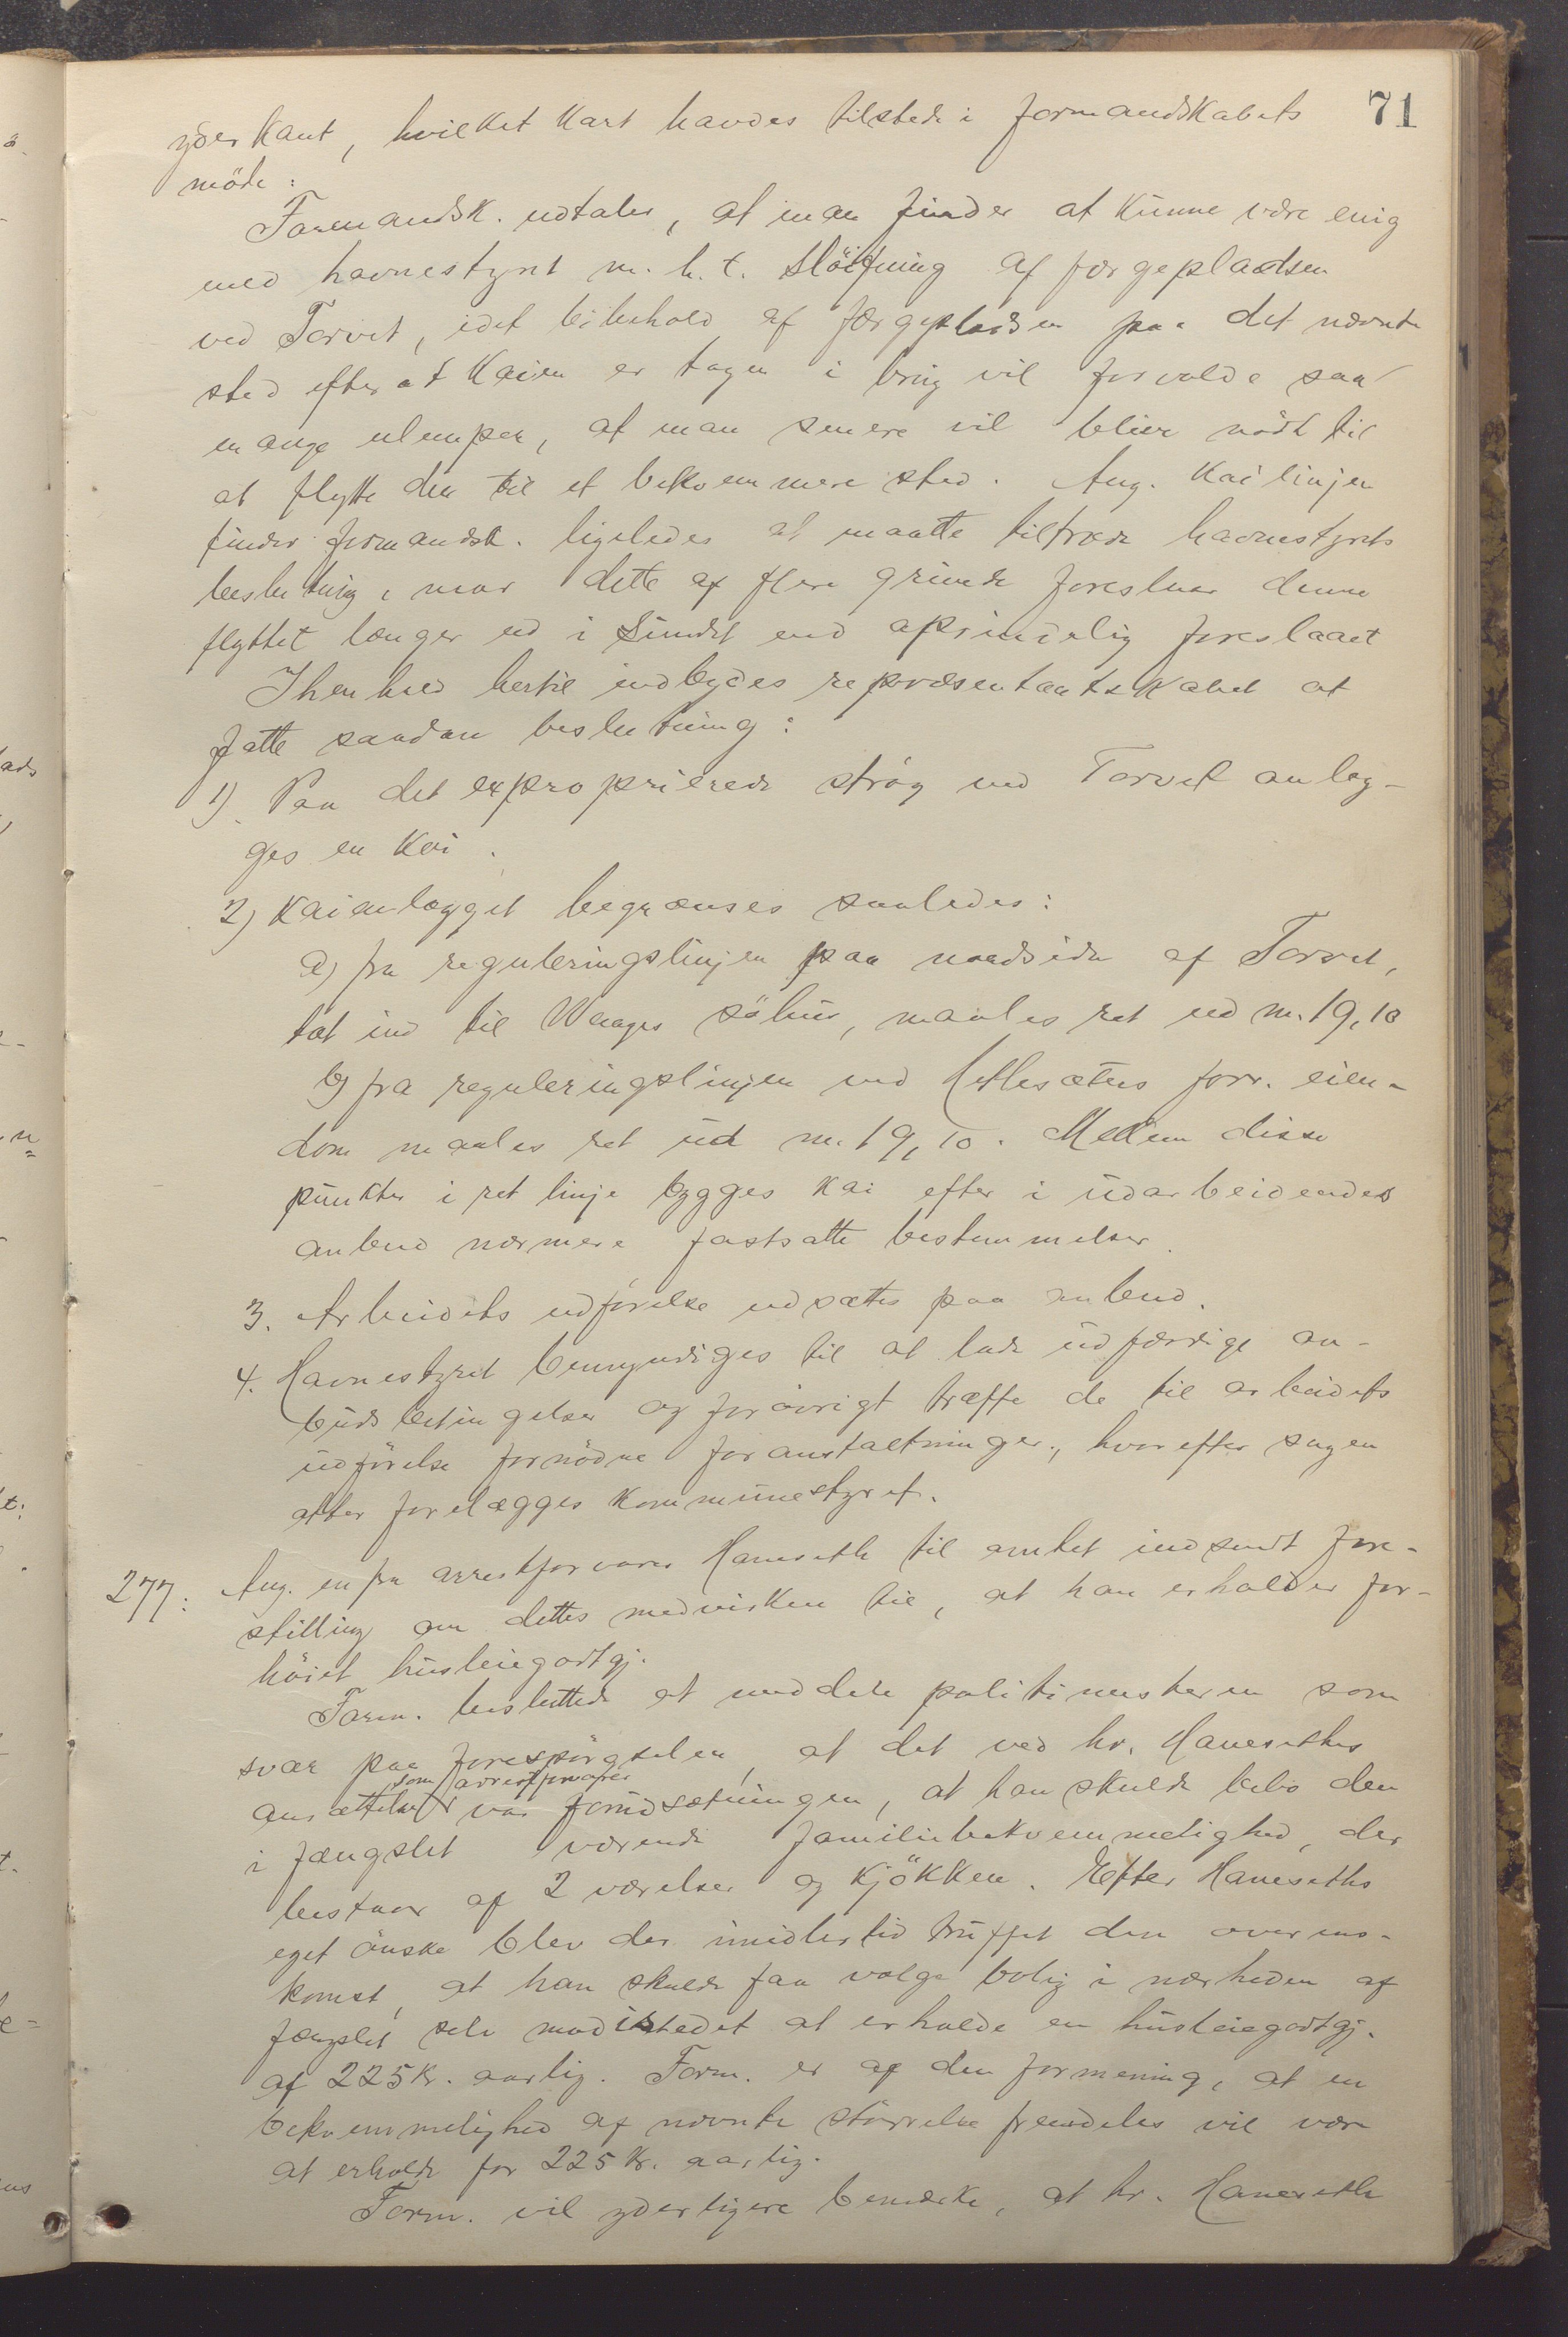 71
yderkant, hvilket kart havdes tilstede i formandskabets
möde:
Formandsk. udtaler, at man finder at kunne være enig
med havnestyret m.h.t. slöifning af færgepladsen
ved Torvet, idet bibehold af færgepladsen paa det nævnte
sted efter at kaien er tagen i brug vil forvolde saa
mange ulemper, at man senere vil blive nödt til
at flytte den til et bekvemmere sted. Ang. kailinjen
finder formandsk. ligeledes at maatte tiltræde havnestyrets
beslutning, naar dette af flere grunde foreslaar denne
flyttet længer ud i Sundet end oprindelig foreslaaet
I henhold hertil indbydes repræsentantskabet at
fatte saadan beslutning:
1) Paa det exproprierede strög ved Torvet anlæg-
ges en kai.
2) Kaianlægget begrænses saaledes:
a) fra reguleringslinjen paa nordside af Torvet,
tæt ind til Waages söhus, maales ret ud m. 19,10
b) fra reguleringslinjen ved Hetlesæters forr. eien-
dom maales ret ud m. 19,10. Mellem disse
punkter i ret linje bygges kai efter i udarbeidendes
anbud nærmere fastsatte bestemmelser.
3. Arbeidets udförelse udsættes paa anbud.
4. Havnestyret bemyndiges til at lade udfærdige an-
budsbetingelser og forövrigt træffe de til arbeidets
udförelse fornödne foranstaltninger, hvorefter sagen
atter forelægges kommunestyret.
277: Ang. en fra arrestforvarer Haneseth til amtet indsendt fore-
stilling om dettes medvirken til, at han erholder for-
höiet husleiegodtgj.
Form. besluttede at meddele politimesteren som
svar paa forespörgselen, at det ved hr. Haneseths
som arrestforvarer
ansættelse var forudsætningen, at han skulde bebo den
i fængslet værende familiebekvemmelighed, der
bestaar af 2 værelser og kjökken. Efter Haneseths
eget önske blev der imidlertid truffet den overens-
komst, at han skulde faa vælge bolig i nærheden af
fængslet selv mod istedet at erholde en husleiegodtgj.
af 225 kr. aarlig. Form. er af den formening, at en
bekvemmelighed af nævnte störrelse fremdeles vil være
at erholde for 225 kr. aarlig.
Form. vil yderligere bemærke, at hr. Haneseth